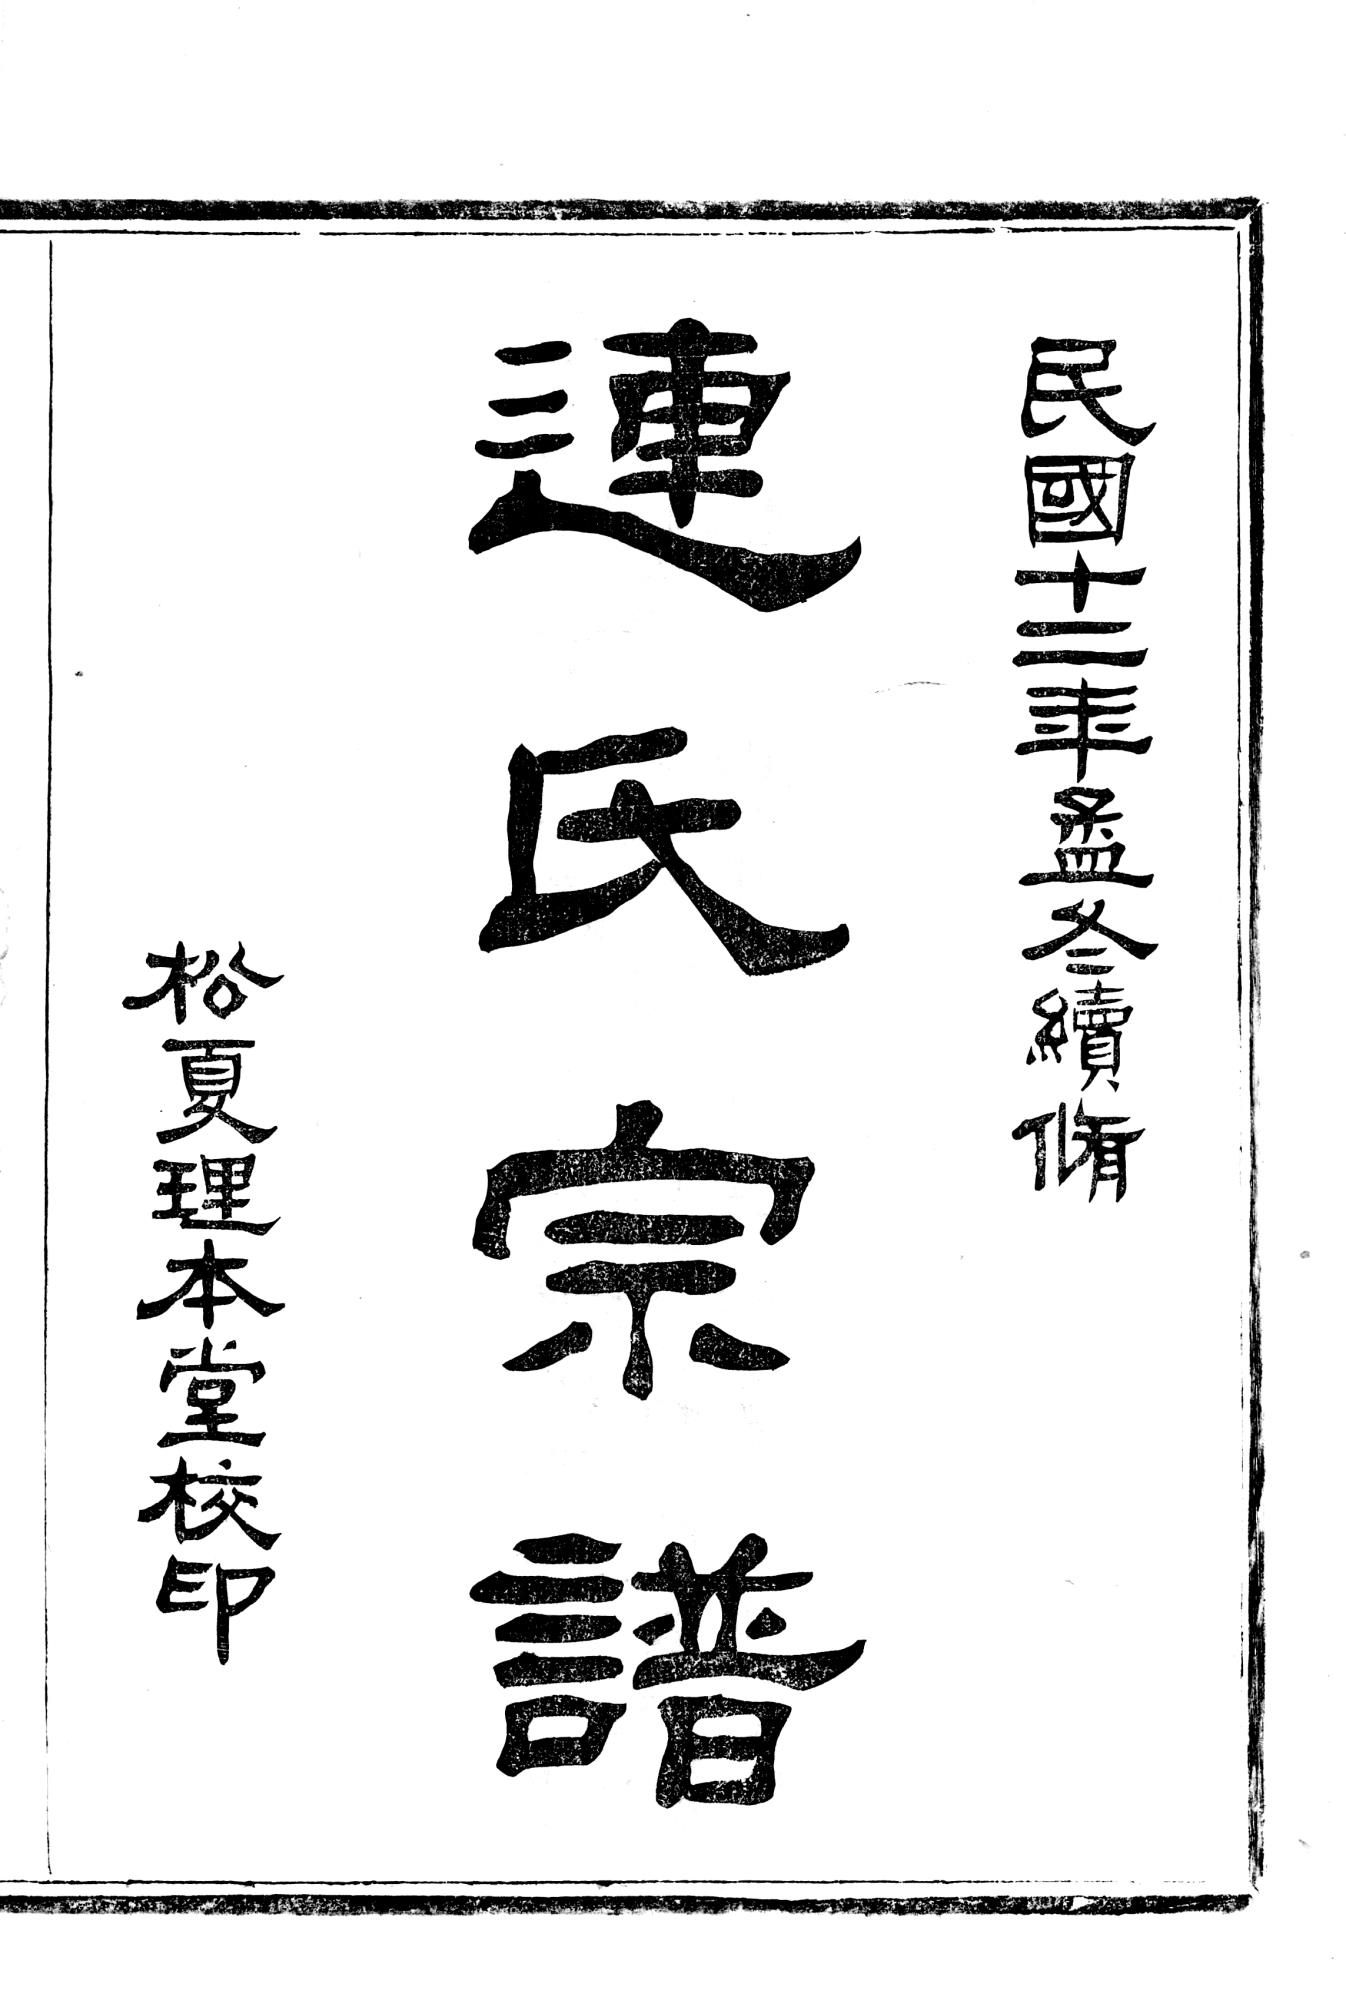 民國十二年孟冬續脩
連氏宗譜
松夏理本堂校印